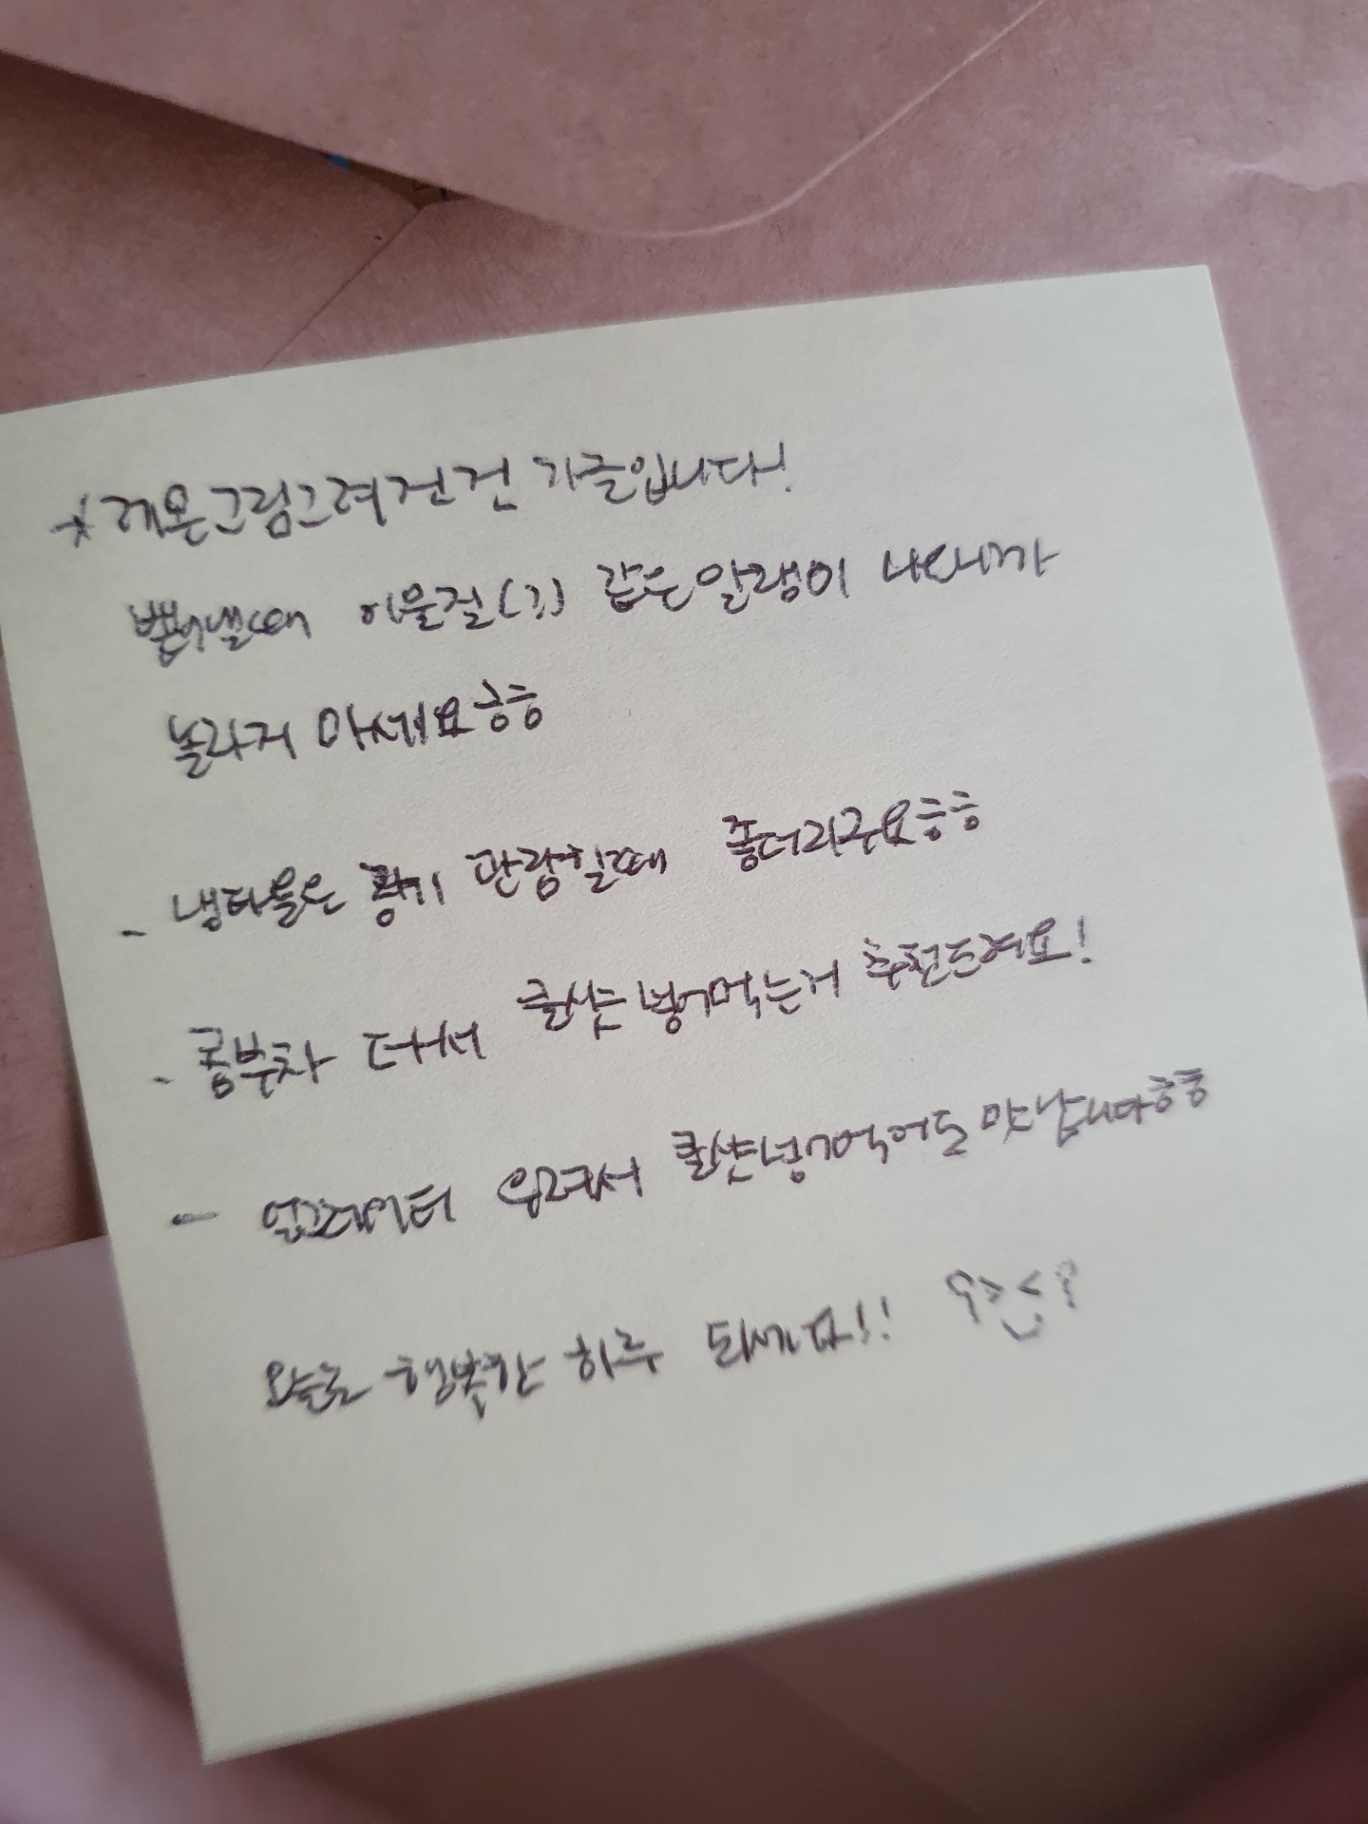 * 레몬그림그려진건 가글입니다!
뱉어낼때 이물질(?) 같은 알갱이 나오니까
놀라지 마세요ㅎㅎ
- 냉타올은 경기 관람할때 좋더라구요ㅎㅎ
- 콤부차 타서 콜샷넣어먹는거 추천드려요!
- 우려서 콜샷넣어먹어도 맛납니다ㅎㅎ
오늘도 행복한 하루 되세요!!